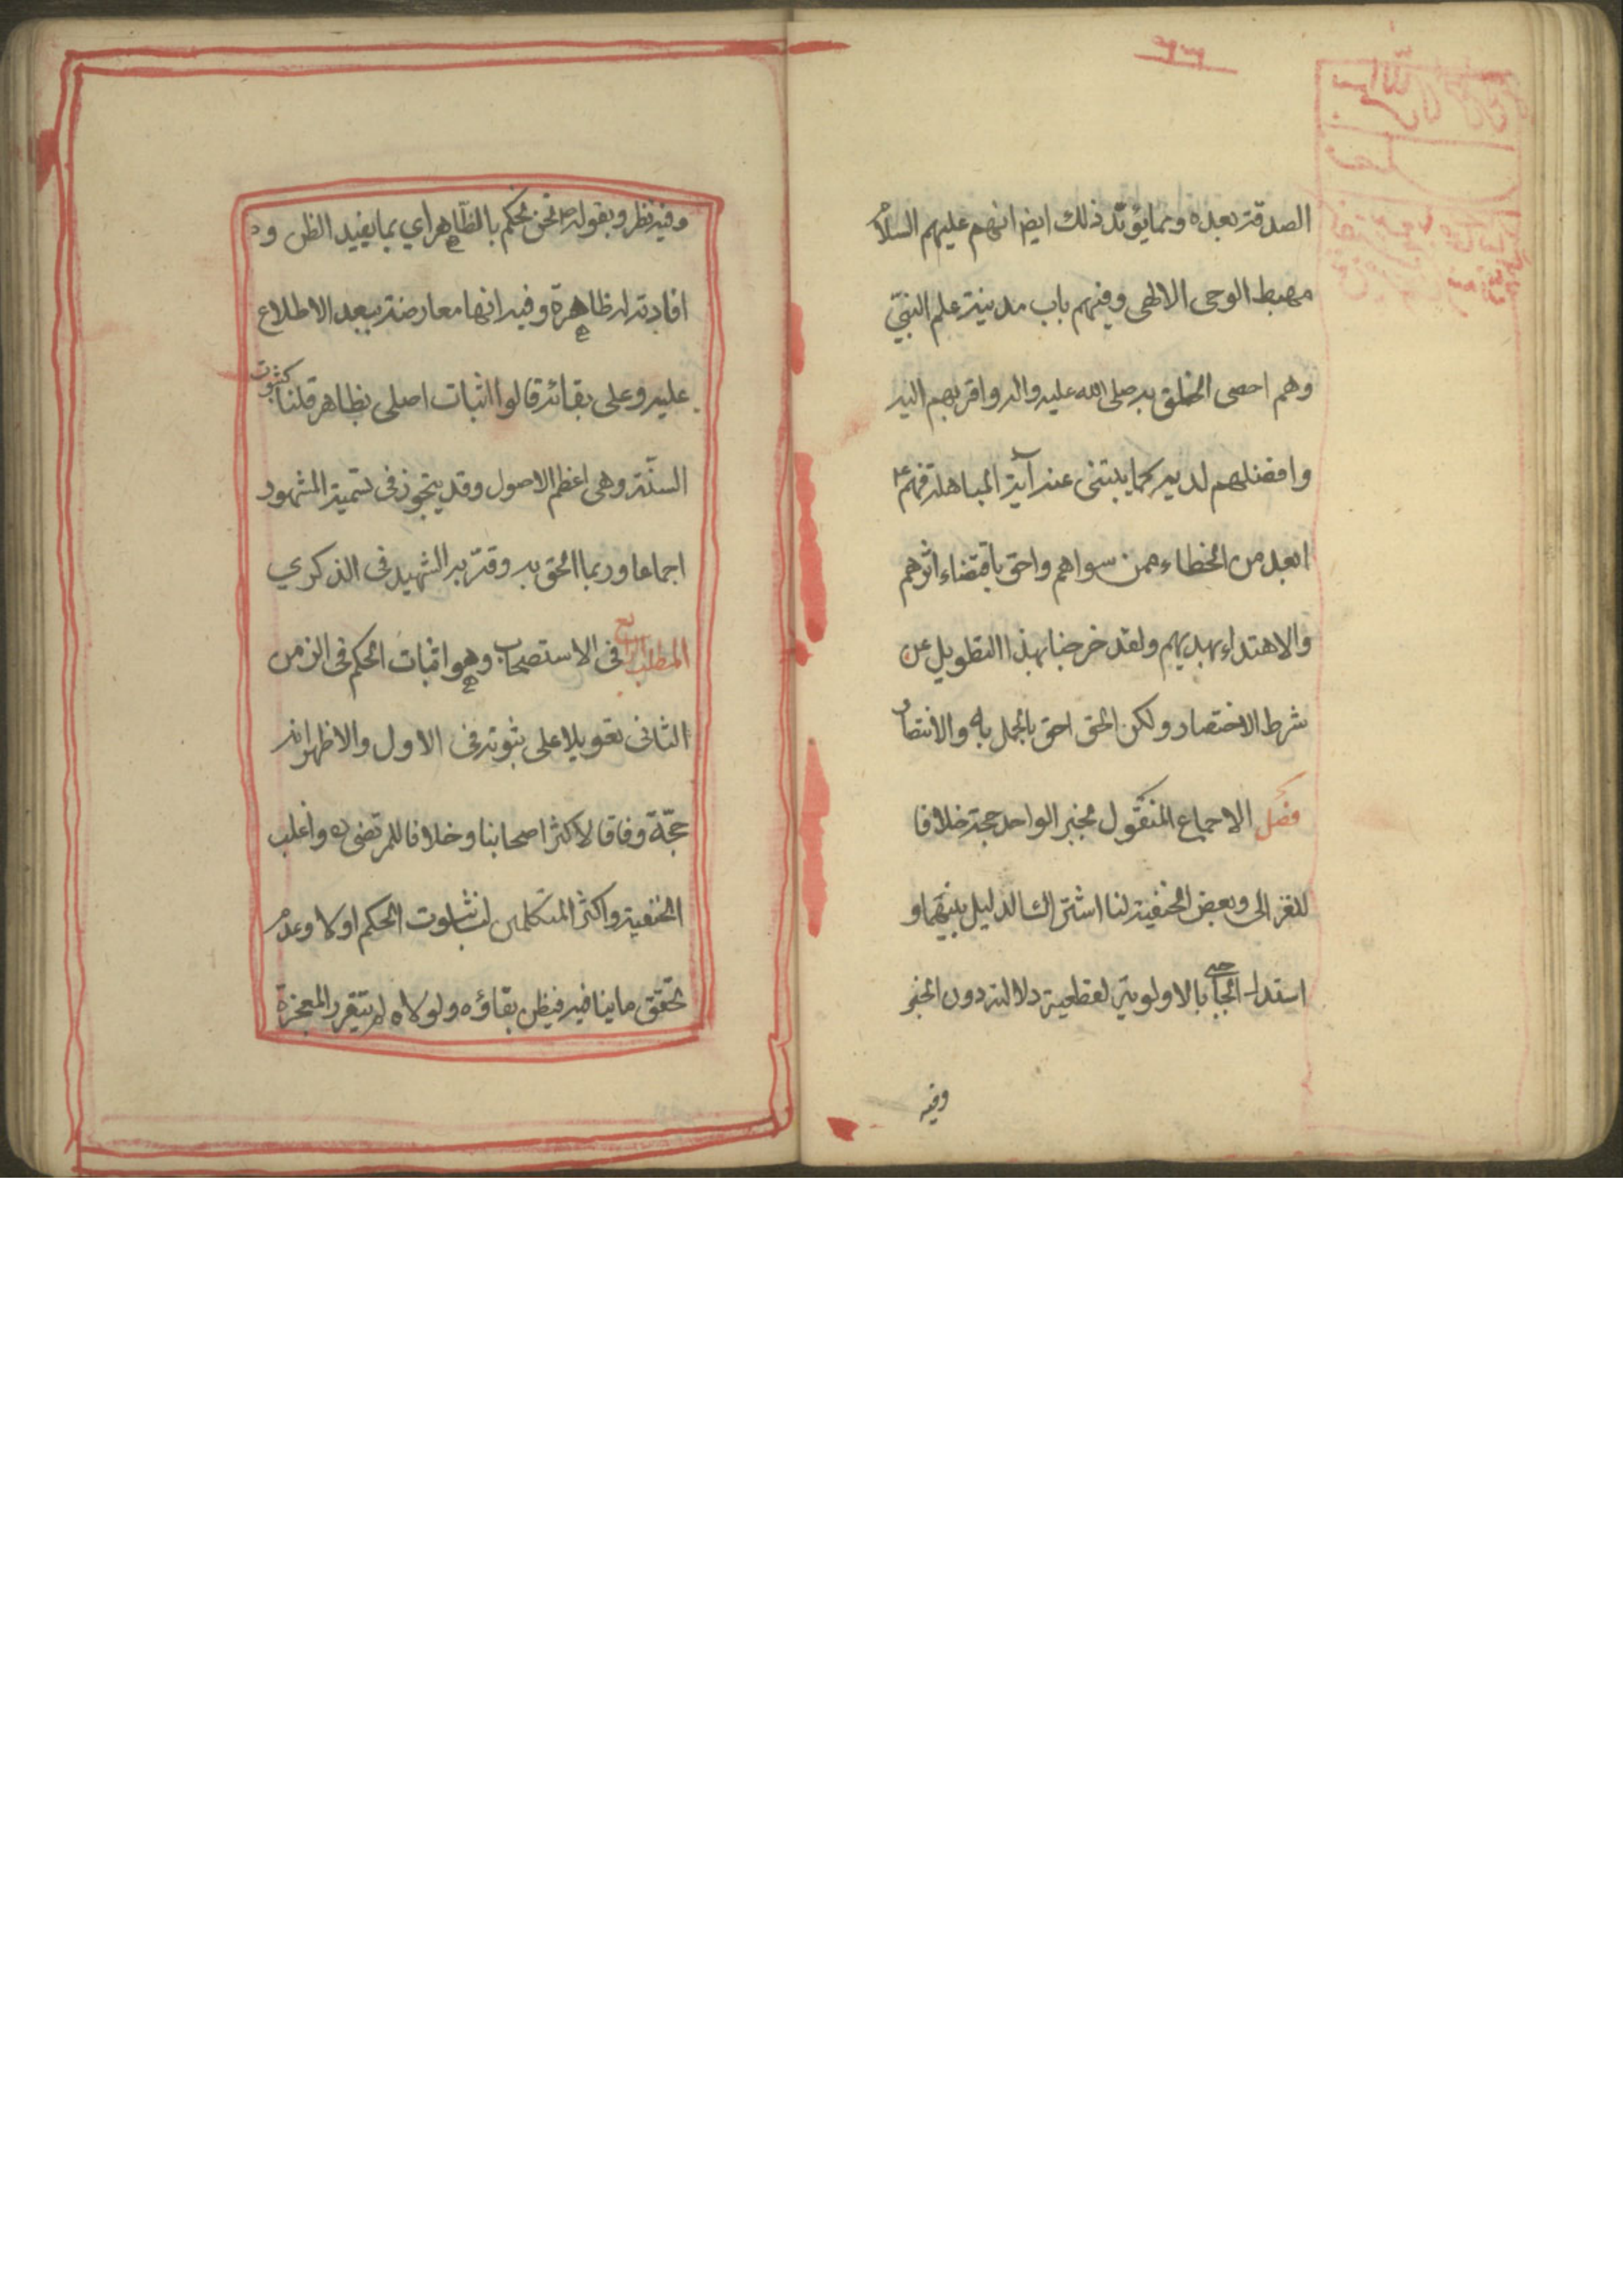 الصدقة بعده ومما يؤيد ذلك ايضا انهم عليهم السلام
مهبط الوحى الالهى وفيهم باب مدينة علم النبيّ
وهم اخص الخلق به صلى الله عليه واله واقربهم اليه
وافضلهم لديه كما ينبئ عنه آية المباهلة فهم ع
ابعد من الخطاء ممن سواهم واحق باقتفاء اثرهم
والاهتداء بهديهم ولقد خرجنا بهذا التطويل عن
شرط الاختصار ولكن الحق احق بالجهل به والانتصار
فصل الاجماع المنقول بخبر الواحد حجة خلافا
للغزالى وبعض الحنفية لنا اشتراك الدليل بينهما و
استدل الحاجبى بالاولوية لقطعية دلالته دون الخبر
وفيه
وفيه نظر وبقوله ص نحن نحكم بالظاهر اي بما يفيد الظن و
افادته له ظاهرة وفيه انها معارضة ببعد الاطلاع
عليه وعلى بقائه قالوا اثبات اصلى بظاهر قلنا كثبوت
السنّة وهى اعظم الاصول وقد يتجوز فى تسمية المشهور
اجماعا وربما الحق به وقرّبه الشهيد فى الذكري
المطلب الرابع فى الاستصحاب وهو اثبات الحكم فى الزمن
الثانى تعويلا على ثبوته فى الاول والاظهر انه
حجّة وفاقا لاكثر اصحابنا وخلافا للمرتضى ره واغلب
الحنفية واكثر المتكلمين لنا ثبوت الحكم اولا وعدم
تحقق ما ينافيه فيظن بقاؤه ولولاه لم يتقرر المعجزة